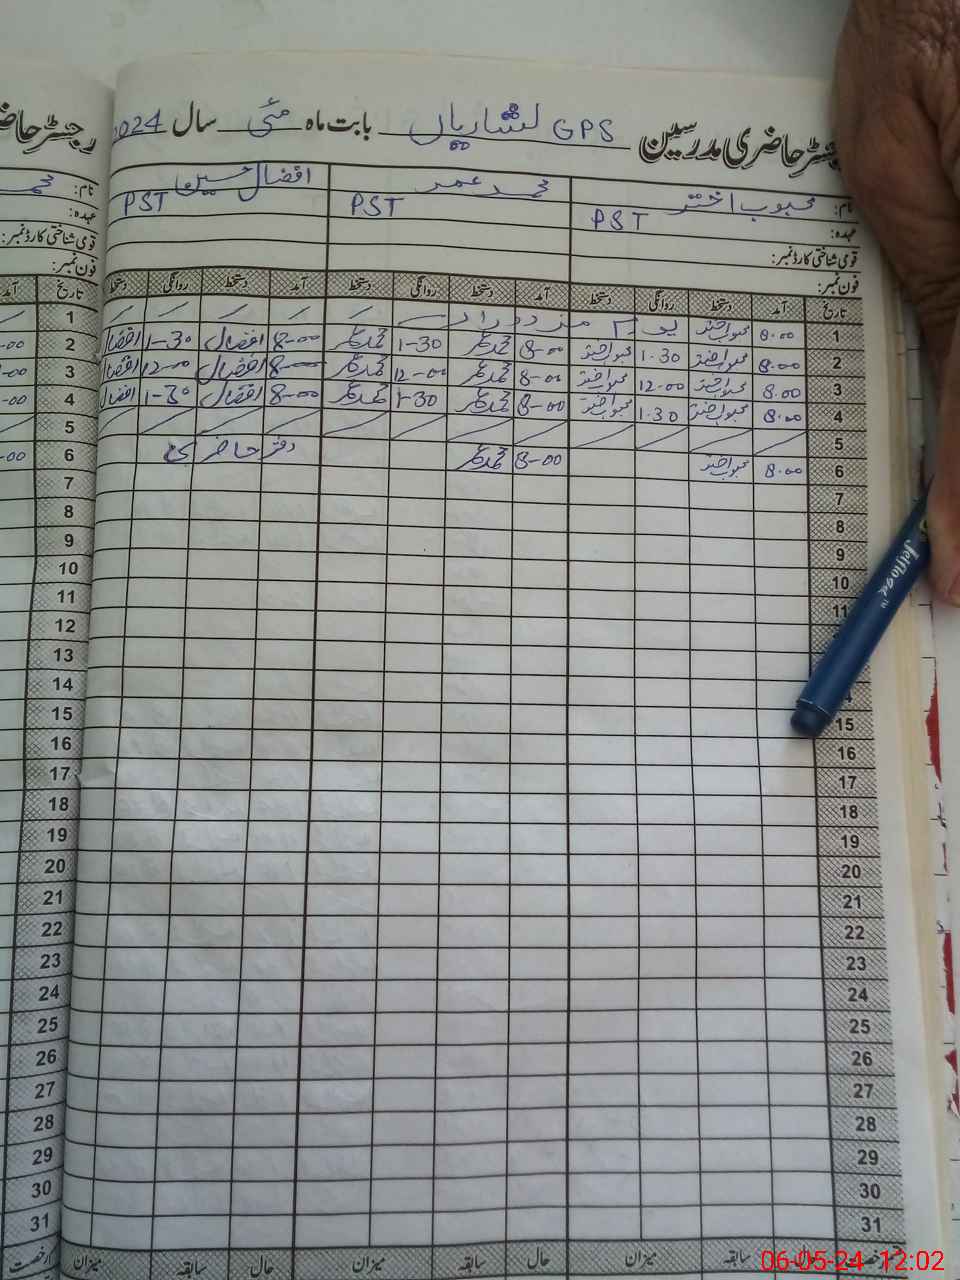 رجسٹر حاضری مدرسین GPS لشاریاں بابت ماہ مئی سال 2024
نام: محبوب اختر محمد عمر افضال حسین
عہدہ: PST PST PST
قومی شناختی کارڈ نمبر:
فون نمبر:
تاریخ آمد دستخط روانگی دستخط آمد دستخط روانگی دستخط آمد دستخط روانگی دستخط تاریخ
1 8.00 محبوب اختر یوم مزدوراں 1
2 8.00 محبوب اختر 1.30 محبوب اختر 8-00 محمد عمر 1-30 محمد عمر 8-00 افضال 1-30 افضال 2
3 8.00 محبوب اختر 12.00 محبوب اختر 8-00 محمد عمر 12-00 محمد عمر 8-00 افضال 12-00 افضال 3
4 8.00 محبوب اختر 1.30 محبوب اختر 8-00 محمد عمر 1-30 محمد عمر 8-00 افضال 1-30 افضال 4
5 5
6 8.00 محبوب اختر 8-00 محمد عمر دفتر حاضری 6
7 7
8 8
9 9
10 10
11 11
12
13
14
15 15
16 16
17 17
18 18
19 19
20 20
21 21
22 22
23 23
24 24
25 25
26 26
27 27
28 28
29 29
30 30
31 31
رخصت حال سابقہ میزان حال سابقہ میزان حال سابقہ میزان
رجسٹر حاضری
نام:
عہدہ:
قومی شناختی کارڈ نمبر:
فون نمبر:
آمد
-00
-00
-00
-00
Jelflosse™
06-05-24 12:02